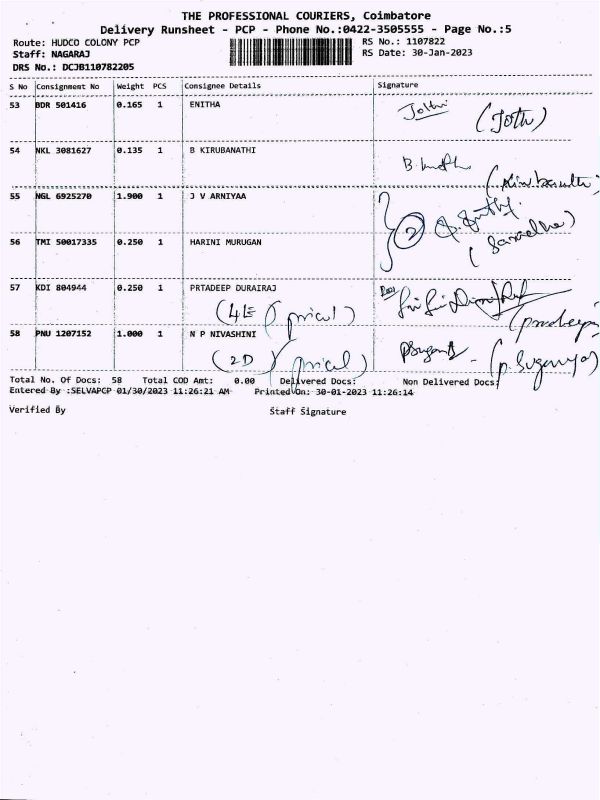 THE PROFESSIONAL COURIERS, Coimbatore
Delivery Runsheet - PCP - Phone No.:0422-3505555 - Page No.:5
Route: HUDCO COLONY PCP
RS No.: 1107822
Staff: NAGARAJ
RS Date: 30-Jan-2023
DRS No.: DCJB110782205
S No Consignment No Weight PCS Consignee Details Signature
53 BDR 501416 0.165 1 ENITHA
(Joth)
54 NKL 3081627 0.135 1 B KIRUBANATHI
55 NGL 6925270 1.900 1 J V ARNIYAA
2
56 TMI 50017335 0.250 1 HARINI MURUGAN
57 KDI 804944 0.250 1 PRTADEEP DURAIRAJ
(4E)
58 PNU 1207152 1.000 1 N P NIVASHINI
(2D)
(P. Suganya)
Total No. Of Docs: 58 Total COD Amt: 0.00 Delivered Docs: Non Delivered Docs:
Entered By :SELVAPCP 01/30/2023 11:26:21 AM Printed On: 30-01-2023 11:26:14
Verified By Staff Signature